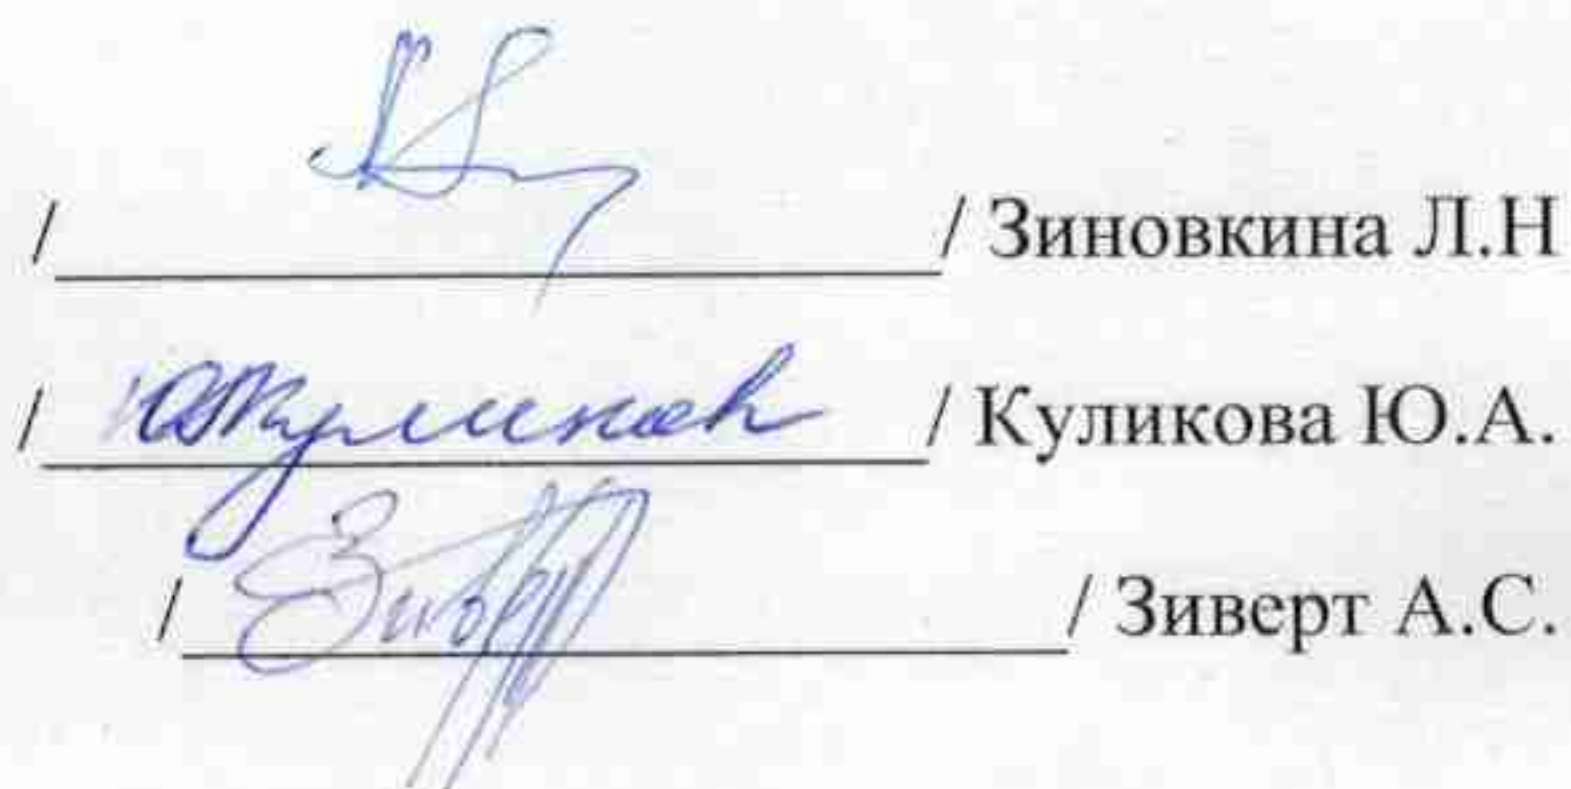 / / Зиновкина Л.Н
/ / Куликова Ю.А.
/ / Зиверт А.С.